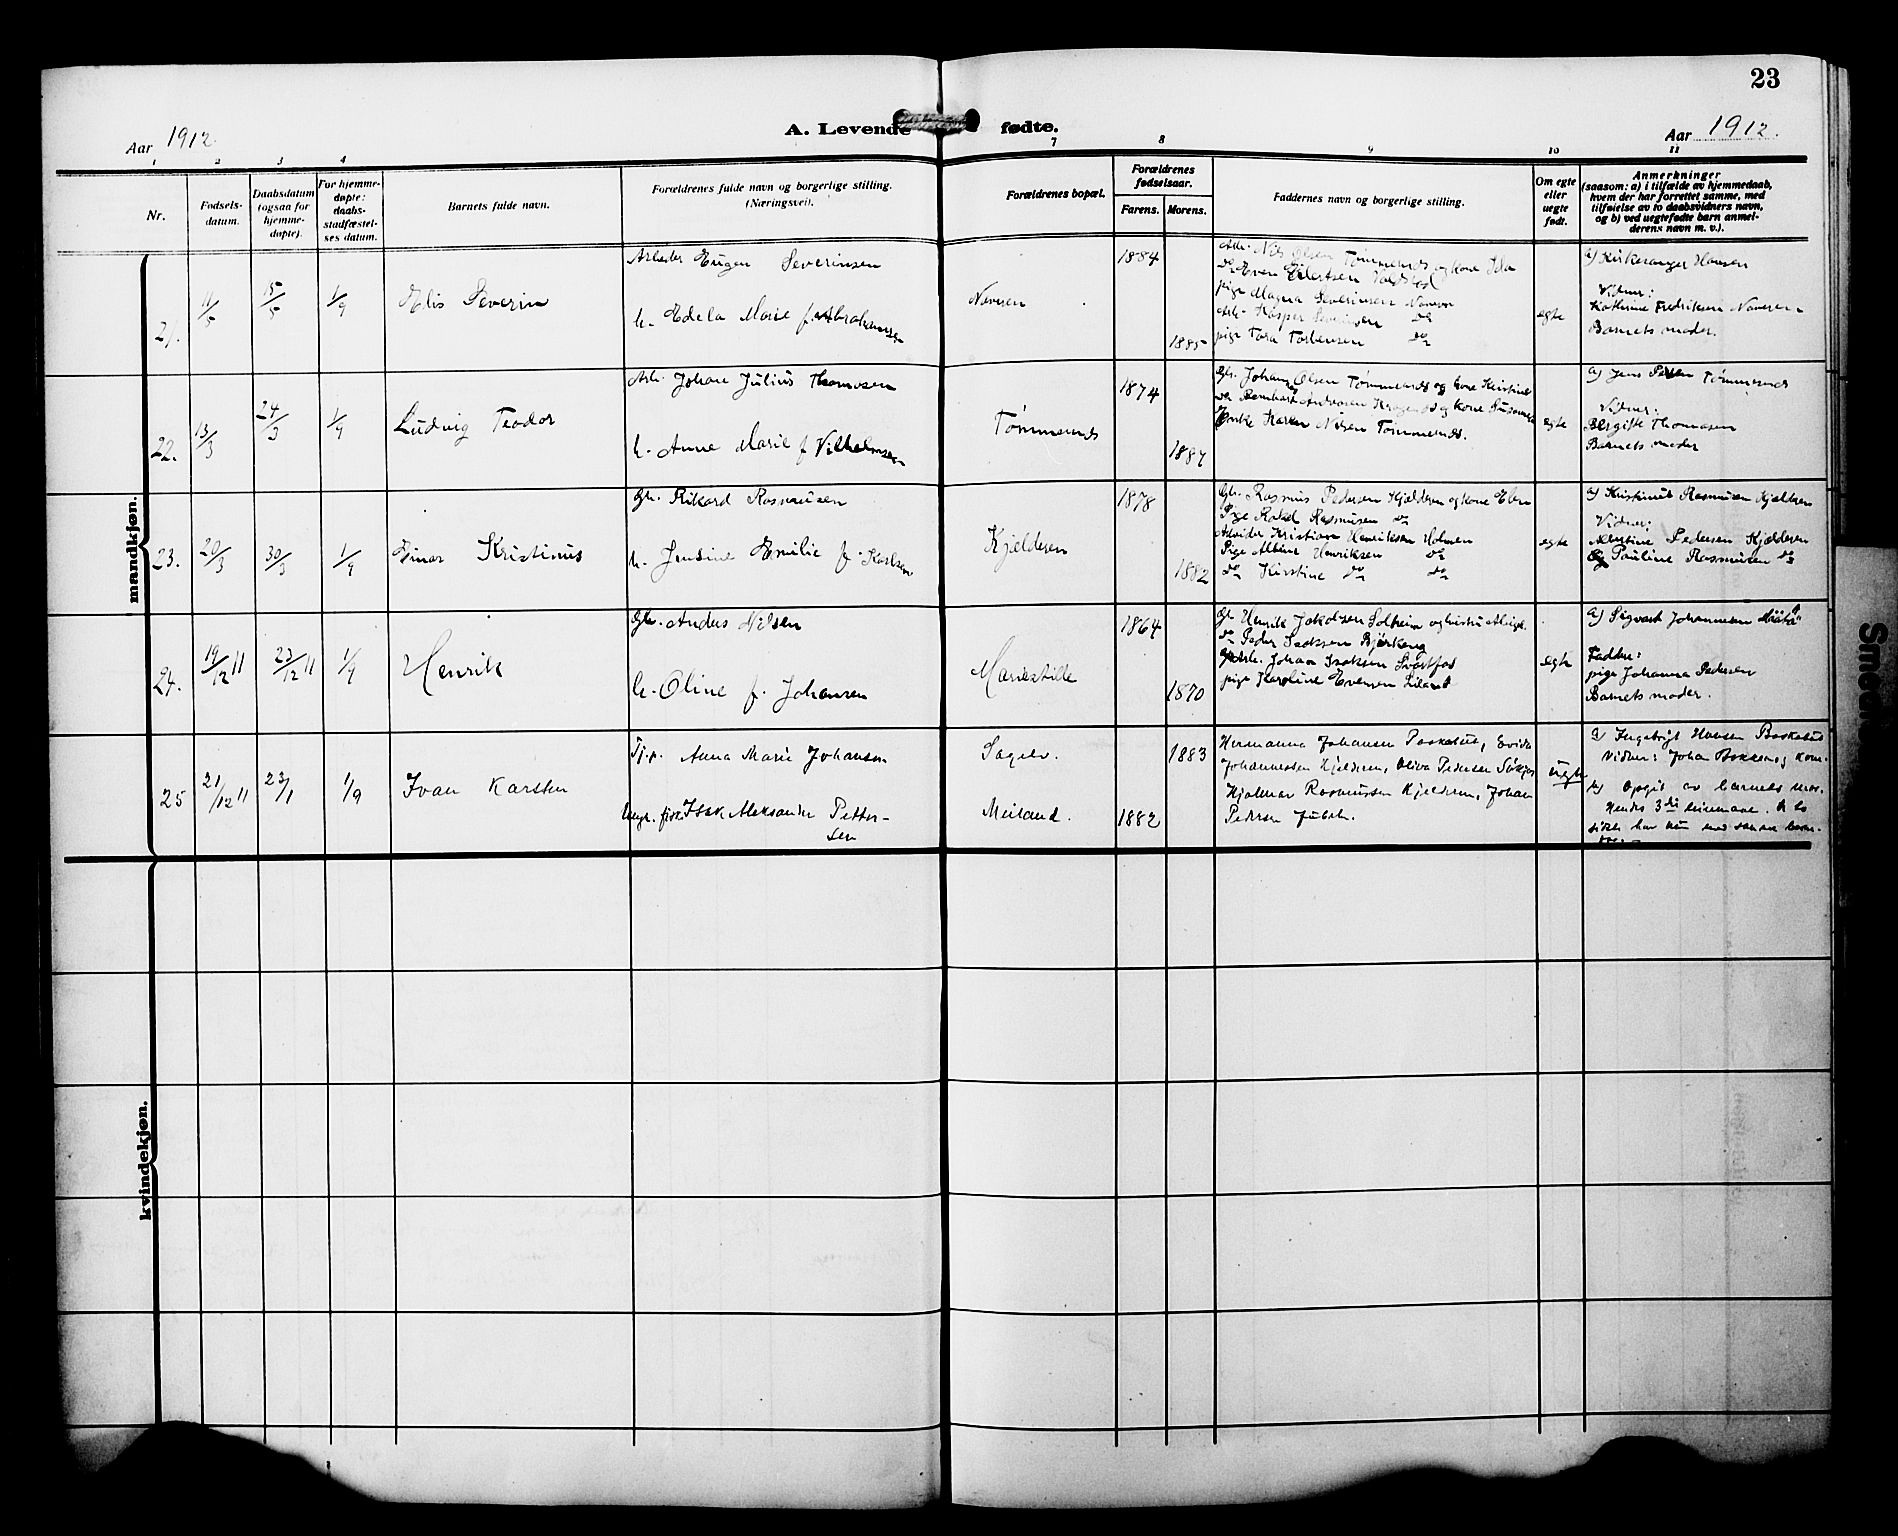 23
Aar 1912.
A. Levende fødte.
Aar 1912.
1 2 3 4 7 8 9 10 11
Nr.
Fødsels-
datum.
Daabsdatum
(ogsaa for
hjemme-
døpte).
For hjemme-
døpte:
daabs-
stadfæstel-
ses datum.
Barnets fulde navn.
Forældrenes fulde navn og borgerlige stilling.
(Næringsvei).
Forældrenes bopæl.
Forældrenes
fødselsaar.
Farens. Morens.
Faddernes navn og borgerlige stilling.
Om egte
eller
uegte
født.
Anmerkninger
(saasom: a) i tilfælde av hjemmedaab,
hvem der har forrettet samme, med
tilføielse av to daabsvidners navn,
og b) ved uegtefødte barn anmel-
derens navn m. v.).
mandkjøn.
21.
11/5
15/5
1/9
Elis Severin
Arbeider Eugen Severinsen
h. Edela Marie f. Abrahamsen
Naveren
1884
1885
Arb. Nils Olsen Tømmernes og kone Ida
do Even Eilertsen
pige Magna Severinsen Naveren
Arb. Kasper Severinsen do
pige Tora Torbensen do
egte
a) Kirkesanger Hansen
Vidner:
Kathrine Fredriksen Naveren
Barnets moder.
22.
13/3
24/3
1/9
Ludvig Teodor
Arb. Johan Julius Thomasen
h. Anne Marie f. Vilhelmsen
Tømmernes
1874
1887
Gbr. Johan Olsen Tømmernes og kone Kirstine
do Bernhard Andreasen og kone Susanna
Enke Karen Nilsen Tømmernes.
egte
a) Jens Tømmernes
Vidner:
Birgitte Thomasen
Barnets moder
23.
20/3
30/3
1/9
Einar Kristinus
Gbr. Rikard Rasmussen
h. Jensine Emilie f. Karlsen
Kjelderen
1878
1882
Gbr. Rasmus Pedersen Kjælderen og kone Elen
Pige Rakel Rasmusen do
Arbeider Kristian Henriksen Holmen
Pige Albine Henriksen do
do Kirstine do do
egte
a) Kristinus Rasmusen Kjelderen
Vidner:
Pedersen Kjælderen
Og Pauline Rasmusen do
24.
19/12 11
23/12 11
1/9
Henrik
Gbr. Anders Nilsen
h. Oline f. Johansen
Mariestille
1864
1870
Gbr Henrik Jakobsen Solheim og hustru
do Peder Isaksen Bjerkeng
Arb. Johan Isaksen Svartfos
pige Karoline Evensen Liland
egte
a) Sigvart Johannesen
Fadder:
pige Johanna Pedersen
Barnets moder.
25
21/12 11
23/1
1/9
Ivan Karsten
Tj.p. Anna Marie Johansen
Ungk. fisk. Isak Aleksander Petter-
sen
Sagelv.
Meiland.
1883
1882
Hermanna Johansen
Johannessen Kjelderen, Oliva Pedersen
Hjalmar Rasmussen Kjelderen, Johan
Pedersen
uegte
a) Ingebrigt Hansen
Vidner: Johan og kone.
b) Opgit av barnets mor.
Hendes 3die leiermaal. De to
sidste har hun med samme barne-
kvindekjøn.